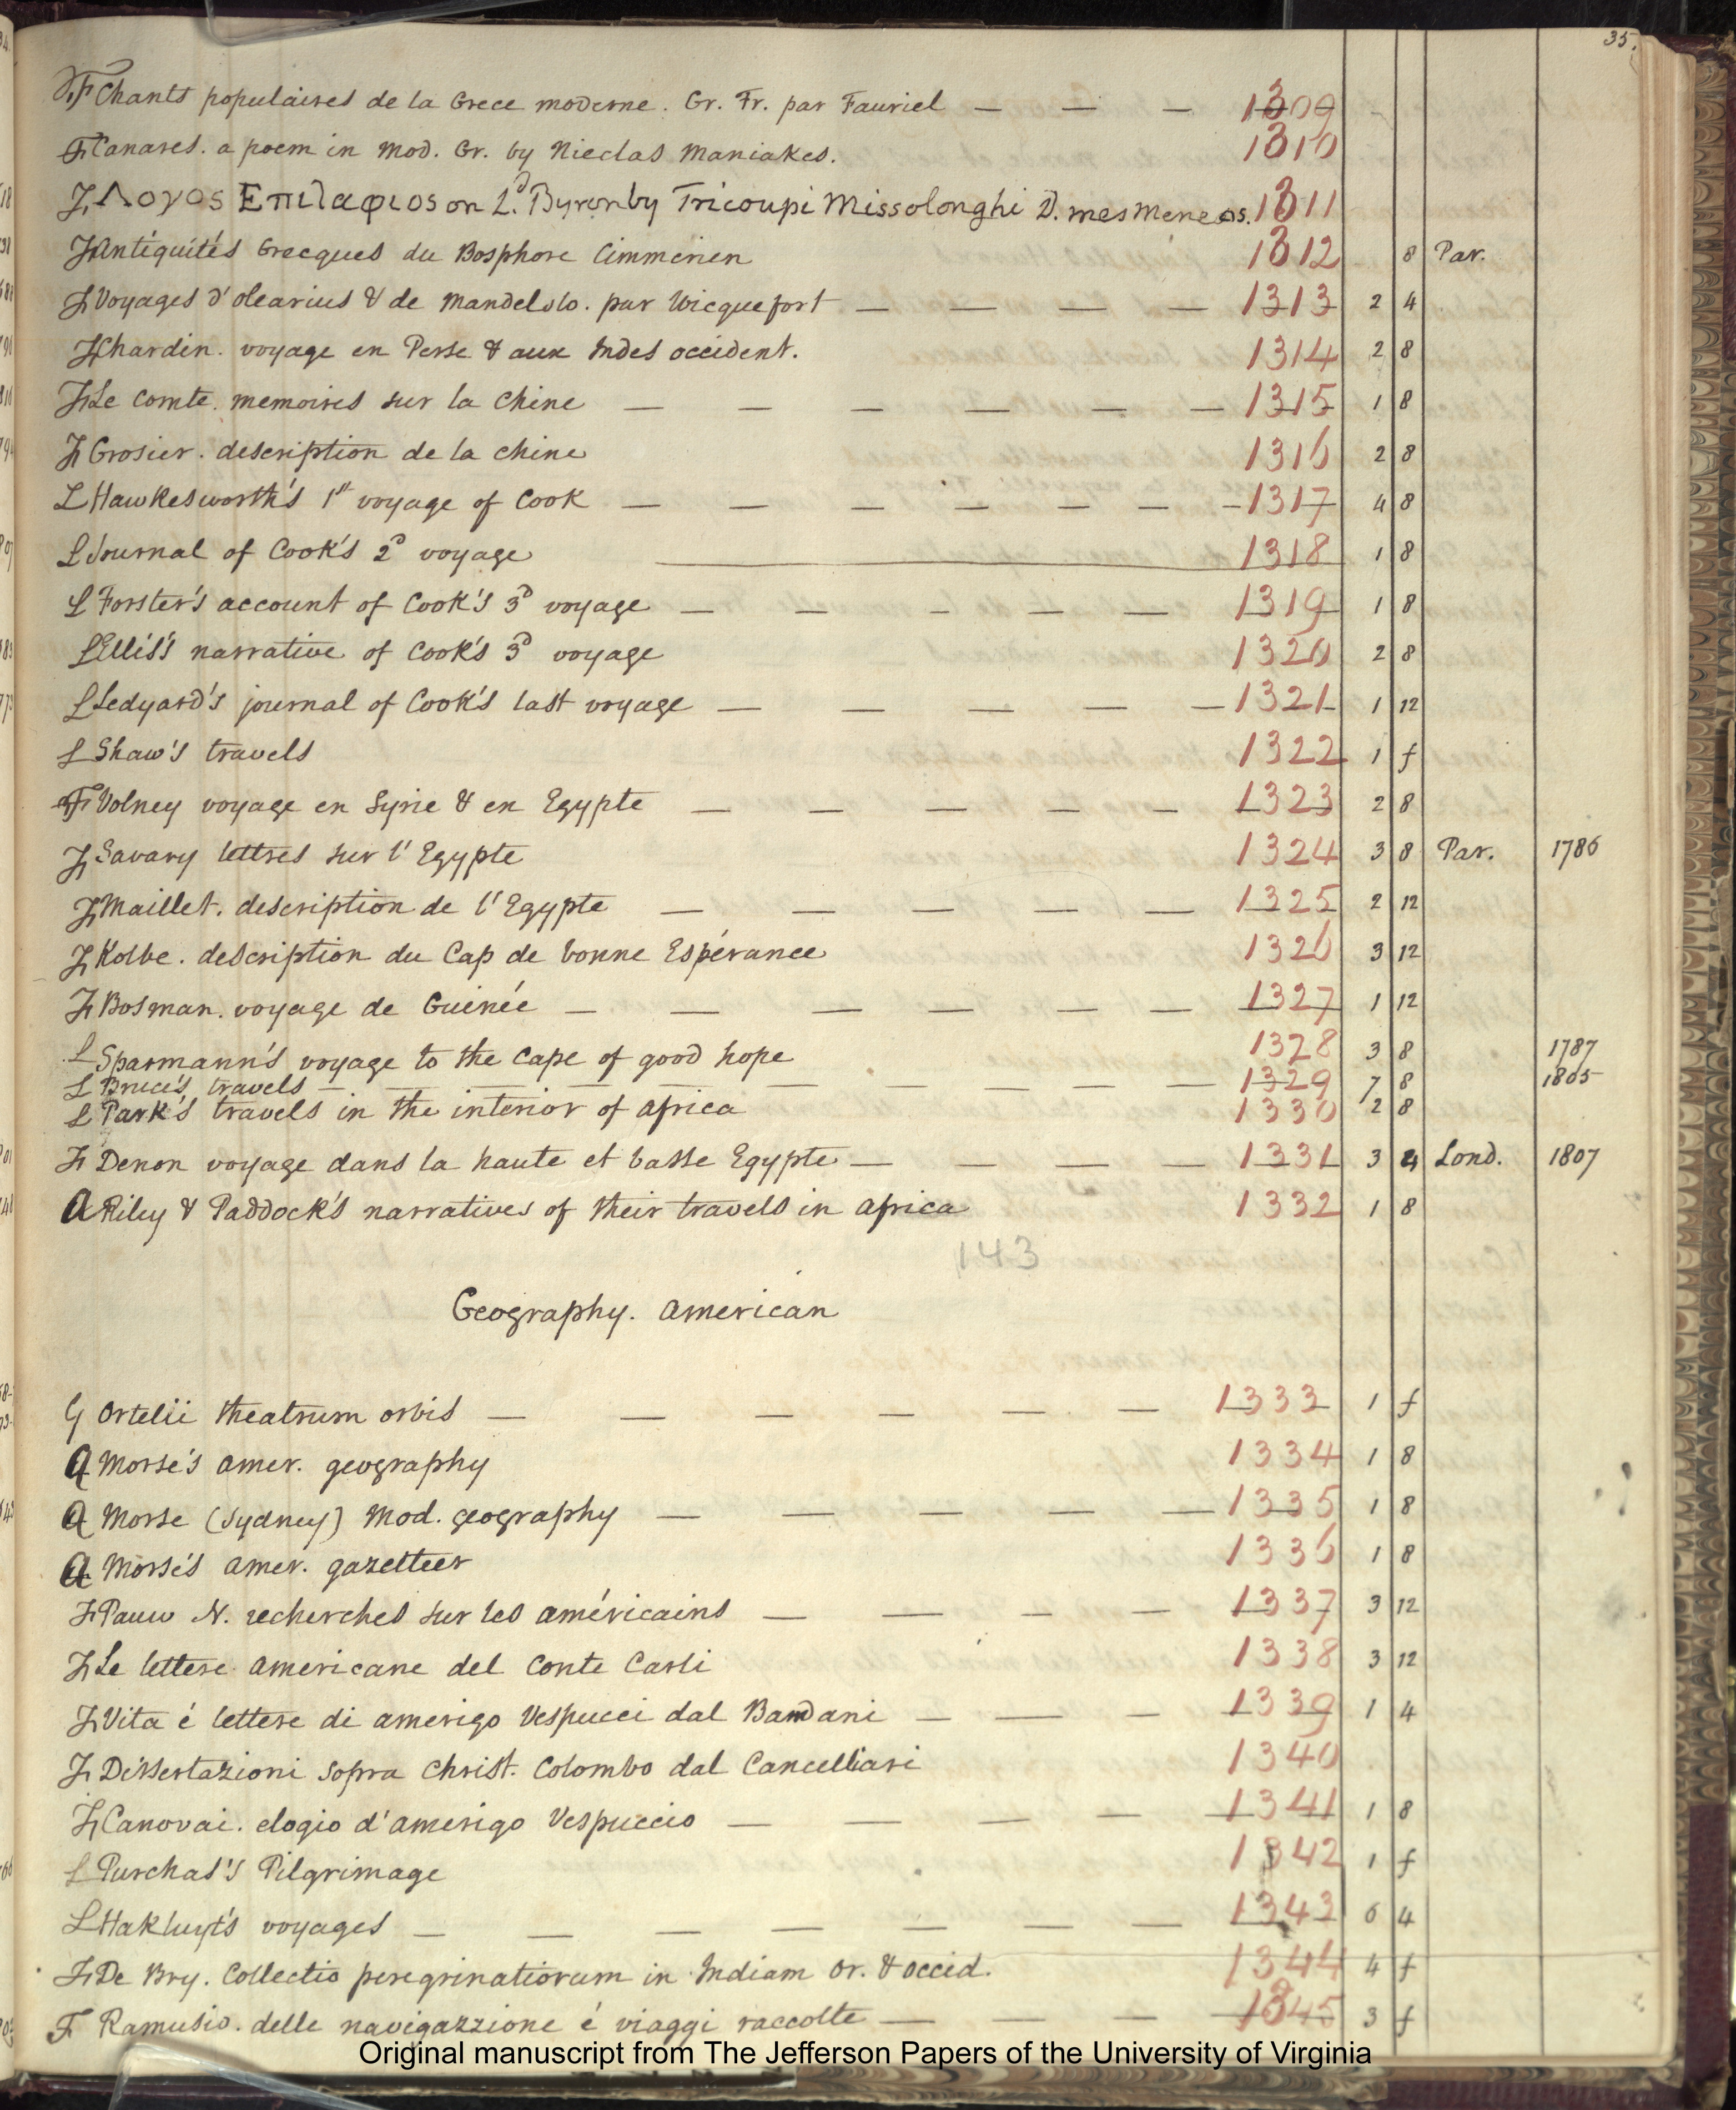 35.
F Chants populaires de la Grece moderne. Gr. Fr. par Fauriel — — — 1309
F Canares. a poem in Mod. Gr. by Nieclas Maniakes. 1310
F Λογος Επιλαφιος on Ld. Byron by Tricoupi Missolonghi D. mesmeneos. 1311
F Antiquités Grecques du Bosphore Cimmerien 1312 8 Par.
F Voyages d'Olearius & de Mandelslo. par Wicquefort — — — — 1313 2 4
F Chardin. voyage en Perse & aux Indes occident. 1314 2 8
F Le Comte. memoires sur la Chine — — — — — — 1315 1 8
F Grosier. description de la Chine 1316 2 8
L Hawkesworth's 1st voyage of Cook — — — — — — — 1317 4 8
L Journal of Cook's 2d voyage 1318 1 8
L Forster's account of Cook's 3d voyage — — — — — 1319 1 8
L Ellis's narrative of Cook's 3d voyage 1320 2 8
L Ledyard's journal of Cook's last voyage — — — — — 1321 1 12
L Shaw's travels 1322 1 f
F Volney voyage en Syrie & en Egypte — — — — — 1323 2 8
F Savary lettres sur l'Egypte 1324 3 8 Par. 1786
F Maillet. description de l'Egypte — — — — — 1325 2 12
F Kolbe. description du Cap de bonne Espérance 1326 3 12
F Bosman. voyage de Guinée — — — — — — 1327 1 12
L Sparmann's voyage to the Cape of good hope 1328 3 8 1787
L Bruce's travels — — — — — — — 1329 7 8 1805
L Park's travels in the interior of Africa 1330 2 8
F Denon voyage dans la haute et basse Egypte — — — — 1331 3 4 Lond. 1807
A Riley & Paddock's narratives of their travels in Africa 1332 1 8
143
Geography. American
G Ortelii theatrum orbis — — — — — — 1333 1 f
A Morse's Amer. geography 1334 1 8
A Morse (Sydney) Mod. geography — — — — — 1335 1 8
A Morse's Amer. gazetteer 1336 1 8
F Pauw N. recherches sur les américains — — — — 1337 3 12
F Le lettere Americane del Conte Carli 1338 3 12
F Vita é lettere di Amerigo Vespucci dal Bandani — — — 1339 1 4
F Dissertazioni sopra Christ. Colombo dal Cancelliari 1340
F Canovai. elogio d'Amerigo Vespuccio — — — — 1341 1 8
L Purchas's Pilgrimage 1342 1 f
L Hakluyt's voyages — — — — — — 1343 6 4
F De Bry. Collectio peregrinatiorum in Indiam Or. & occid. 1344 4 f
F Ramusio. delle navigazzione é viaggi raccolte — — — 1345 3 f
Original manuscript from The Jefferson Papers of the University of Virginia